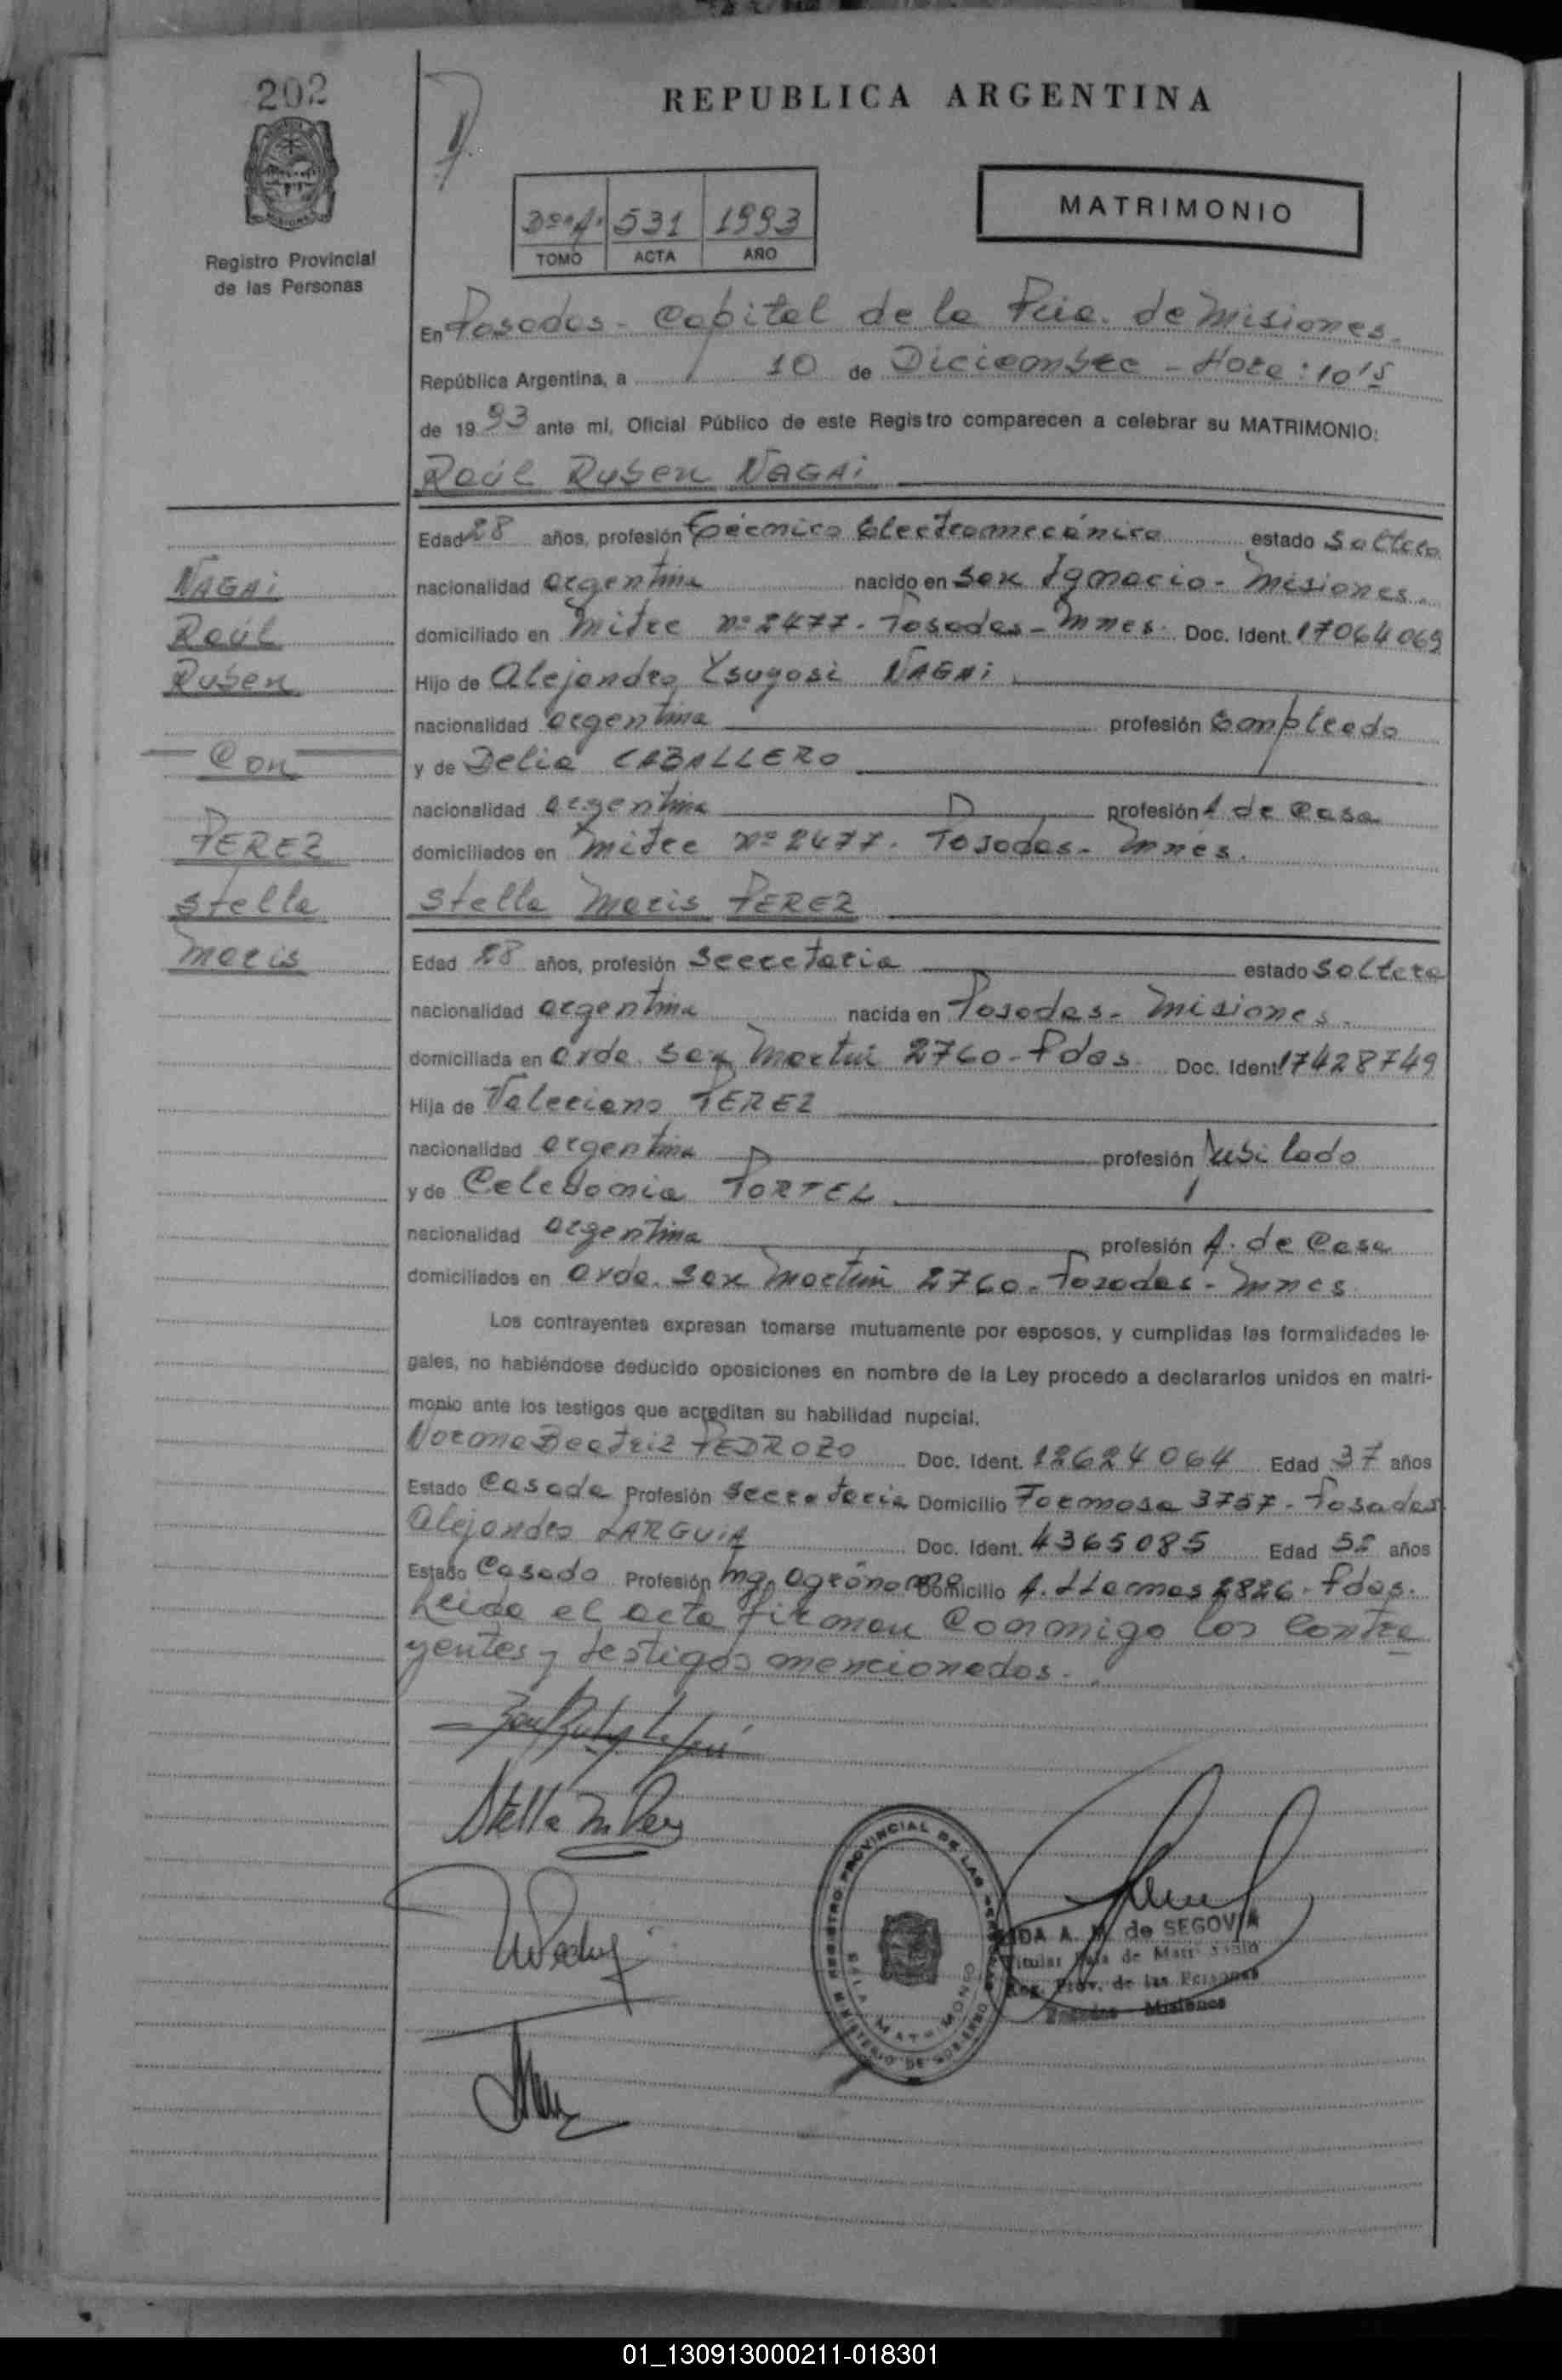 202
REPUBLICA ARGENTINA
Registro Provincial
de las Personas
531 1993
TOMO ACTA AÑO
MATRIMONIO
En Posadas - Capital de la Pcia. de Misiones.
República Argentina, a 10 de Diciembre - Hora: 10'5
de 1993 ante mí, Oficial Público de este Registro comparecen a celebrar su MATRIMONIO:
Raúl Ruben NAGAI
Edad 28 años, profesión Técnico Electromecánico estado Soltero
NAGAI
Raúl
Ruben
Con
PEREZ
Stella
Maris
nacionalidad argentina nacido en San Ignacio - Misiones.
domiciliado en Mitre Nº 2477. Posadas - Mnes. Doc. Ident. 17064069
Hijo de Alejandro Tsuyosi NAGAI
nacionalidad argentina profesión Empleado
y de Delia CABALLERO
nacionalidad argentina profesión A de Casa
domiciliados en Mitre Nº 2477. Posadas - Mnes.
Stella Maris PEREZ
Edad 28 años, profesión Secretaria estado Soltera
nacionalidad argentina nacida en Posadas - Misiones.
domiciliada en Avda. San Martin 2760 - Pdas. Doc. Ident. 17428749
Hija de Valeriano PEREZ
nacionalidad argentina profesión Jubilado
y de Celedonia PORTEL
nacionalidad argentina profesión A. de Casa
domiciliados en Avda. San Martin 2760 - Posadas - Mnes
Los contrayentes expresan tomarse mutuamente por esposos, y cumplidas las formalidades le-
gales, no habiéndose deducido oposiciones en nombre de la Ley procedo a declararlos unidos en matri-
monio ante los testigos que acreditan su habilidad nupcial.
Norma Beatriz PEDROZO Doc. Ident. 12624064 Edad 37 años
Estado Casada Profesión Secretaria Domicilio Formosa 3757 - Posadas
Alejandro LARGUIA Doc. Ident. 4365085 Edad años
Estado Casado Profesión Ing. Agrónomo Domicilio 2826 - Pdas.
Leida el acta firman conmigo los contra
yentes y testigos mencionados.
Stella M Perez
REGISTRO PROVINCIAL DE LAS PERSONAS
SALA MATRIMONIO
MINISTERIO DE GOBIERNO
A. de SEGOVIA
Titular Sala de Matrimonio
Reg. Prov. de las Personas
Posadas - Misiones
01_130913000211-018301